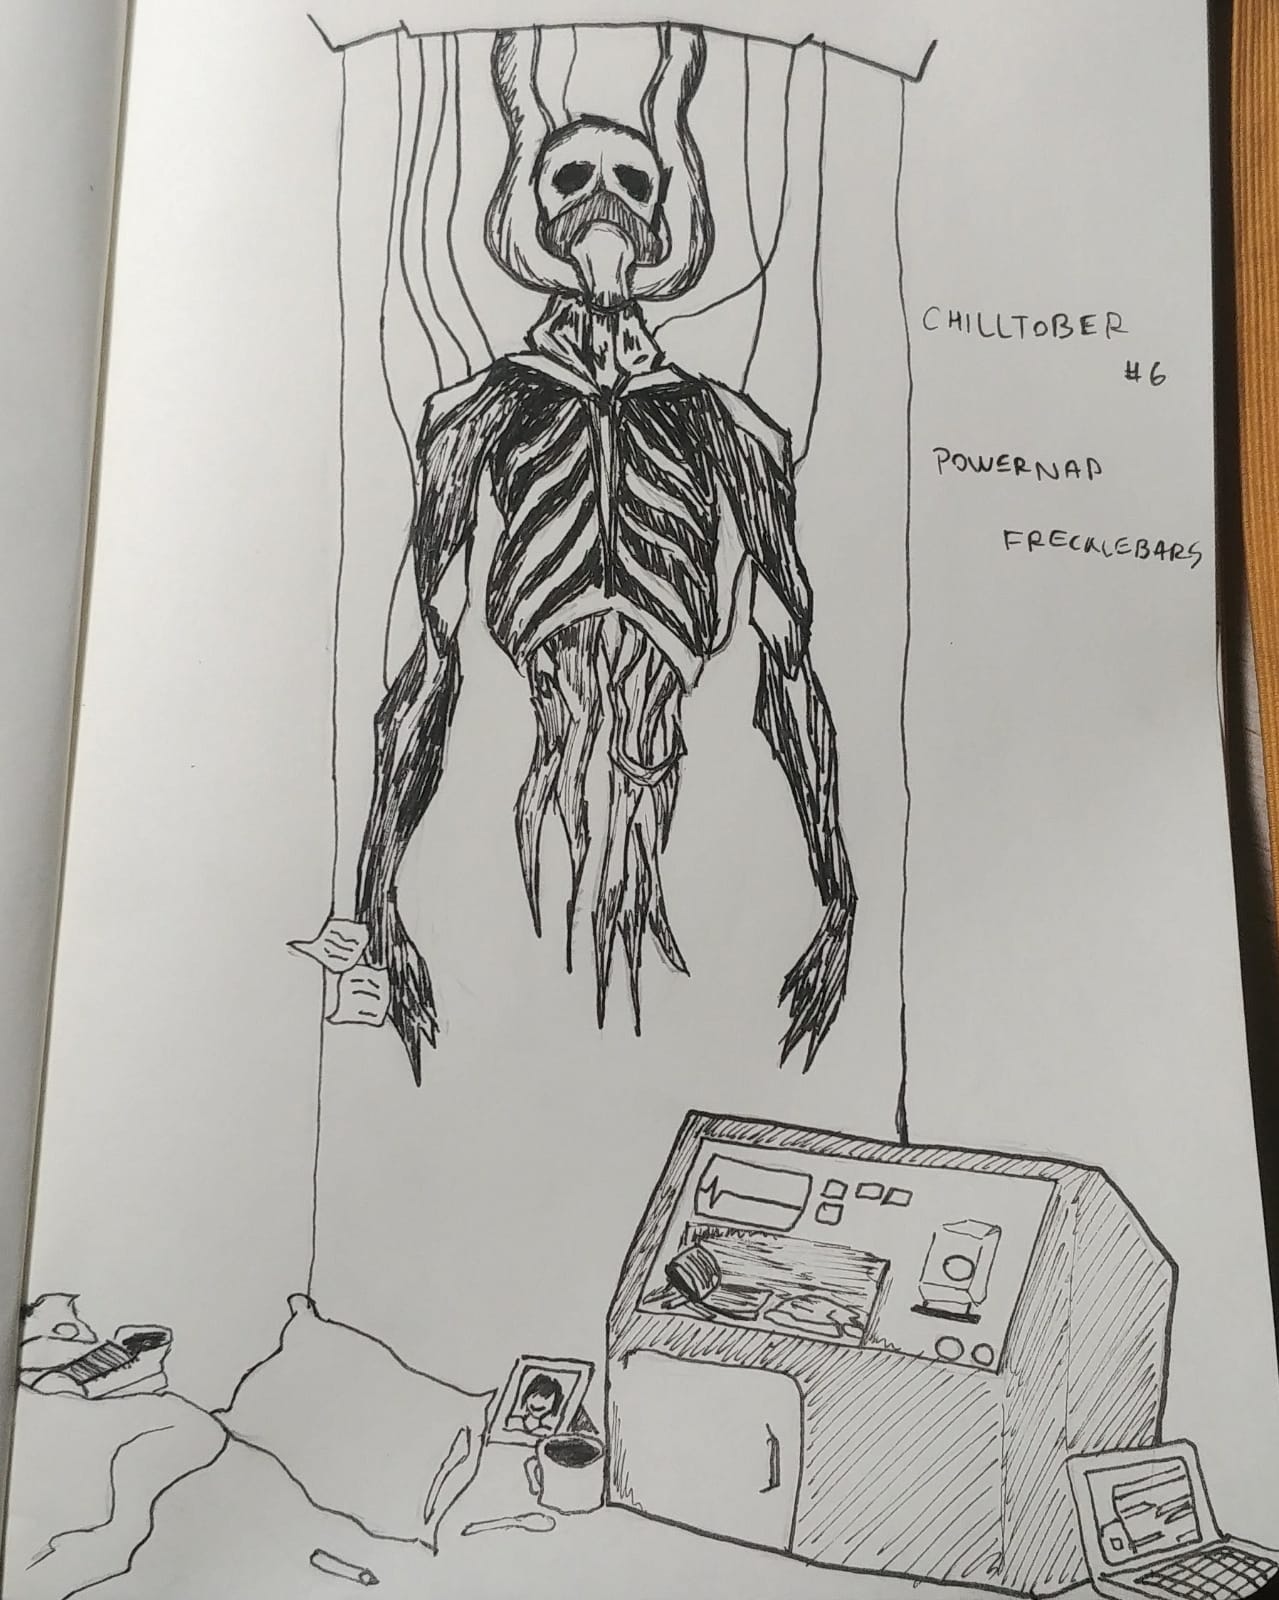 CHILLTOBER
#6
POWERNAP
FRECKLEBARS